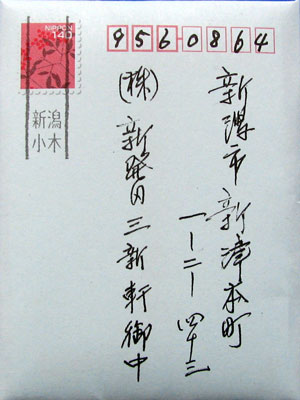 NIPPON
140
新潟
小木
956-0864
新潟市新津本町
一ー二ー四十三
(株)新発田三新軒御中